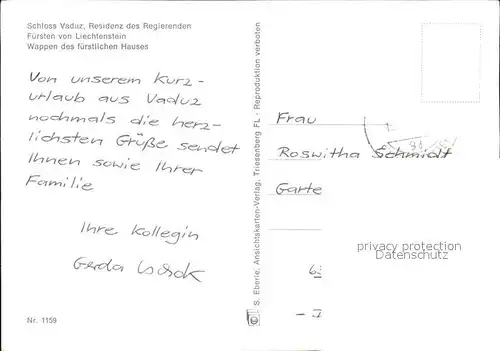 Schloss Vaduz, Residenz des Regierenden
Fürsten von Liechtenstein
Wappen des fürstlichen Hauses
Von unserem Kurz-
urlaub aus Vaduz
nochmals die herz-
lichsten Grüße sendet
Ihnen sowie Ihrer
Familie
Ihre Kollegin
Gerda
Nr. 1159
S. Eberle, Ansichtskarten-Verlag, Triesenberg FL - Reproduktion verboten
Frau
Roswitha Schmidt
Garte
privacy protection
Datenschutz